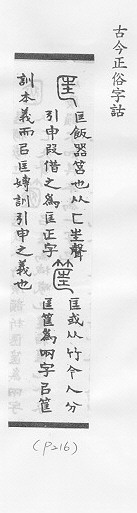 古今正俗字詁
匡飯器筥也从匚㞷聲
筐匡或从竹今人分
引申叚借之為匡正字
匡筐為兩字㠯筐
訓本義而㠯匡專訓引申之義也
(P216)